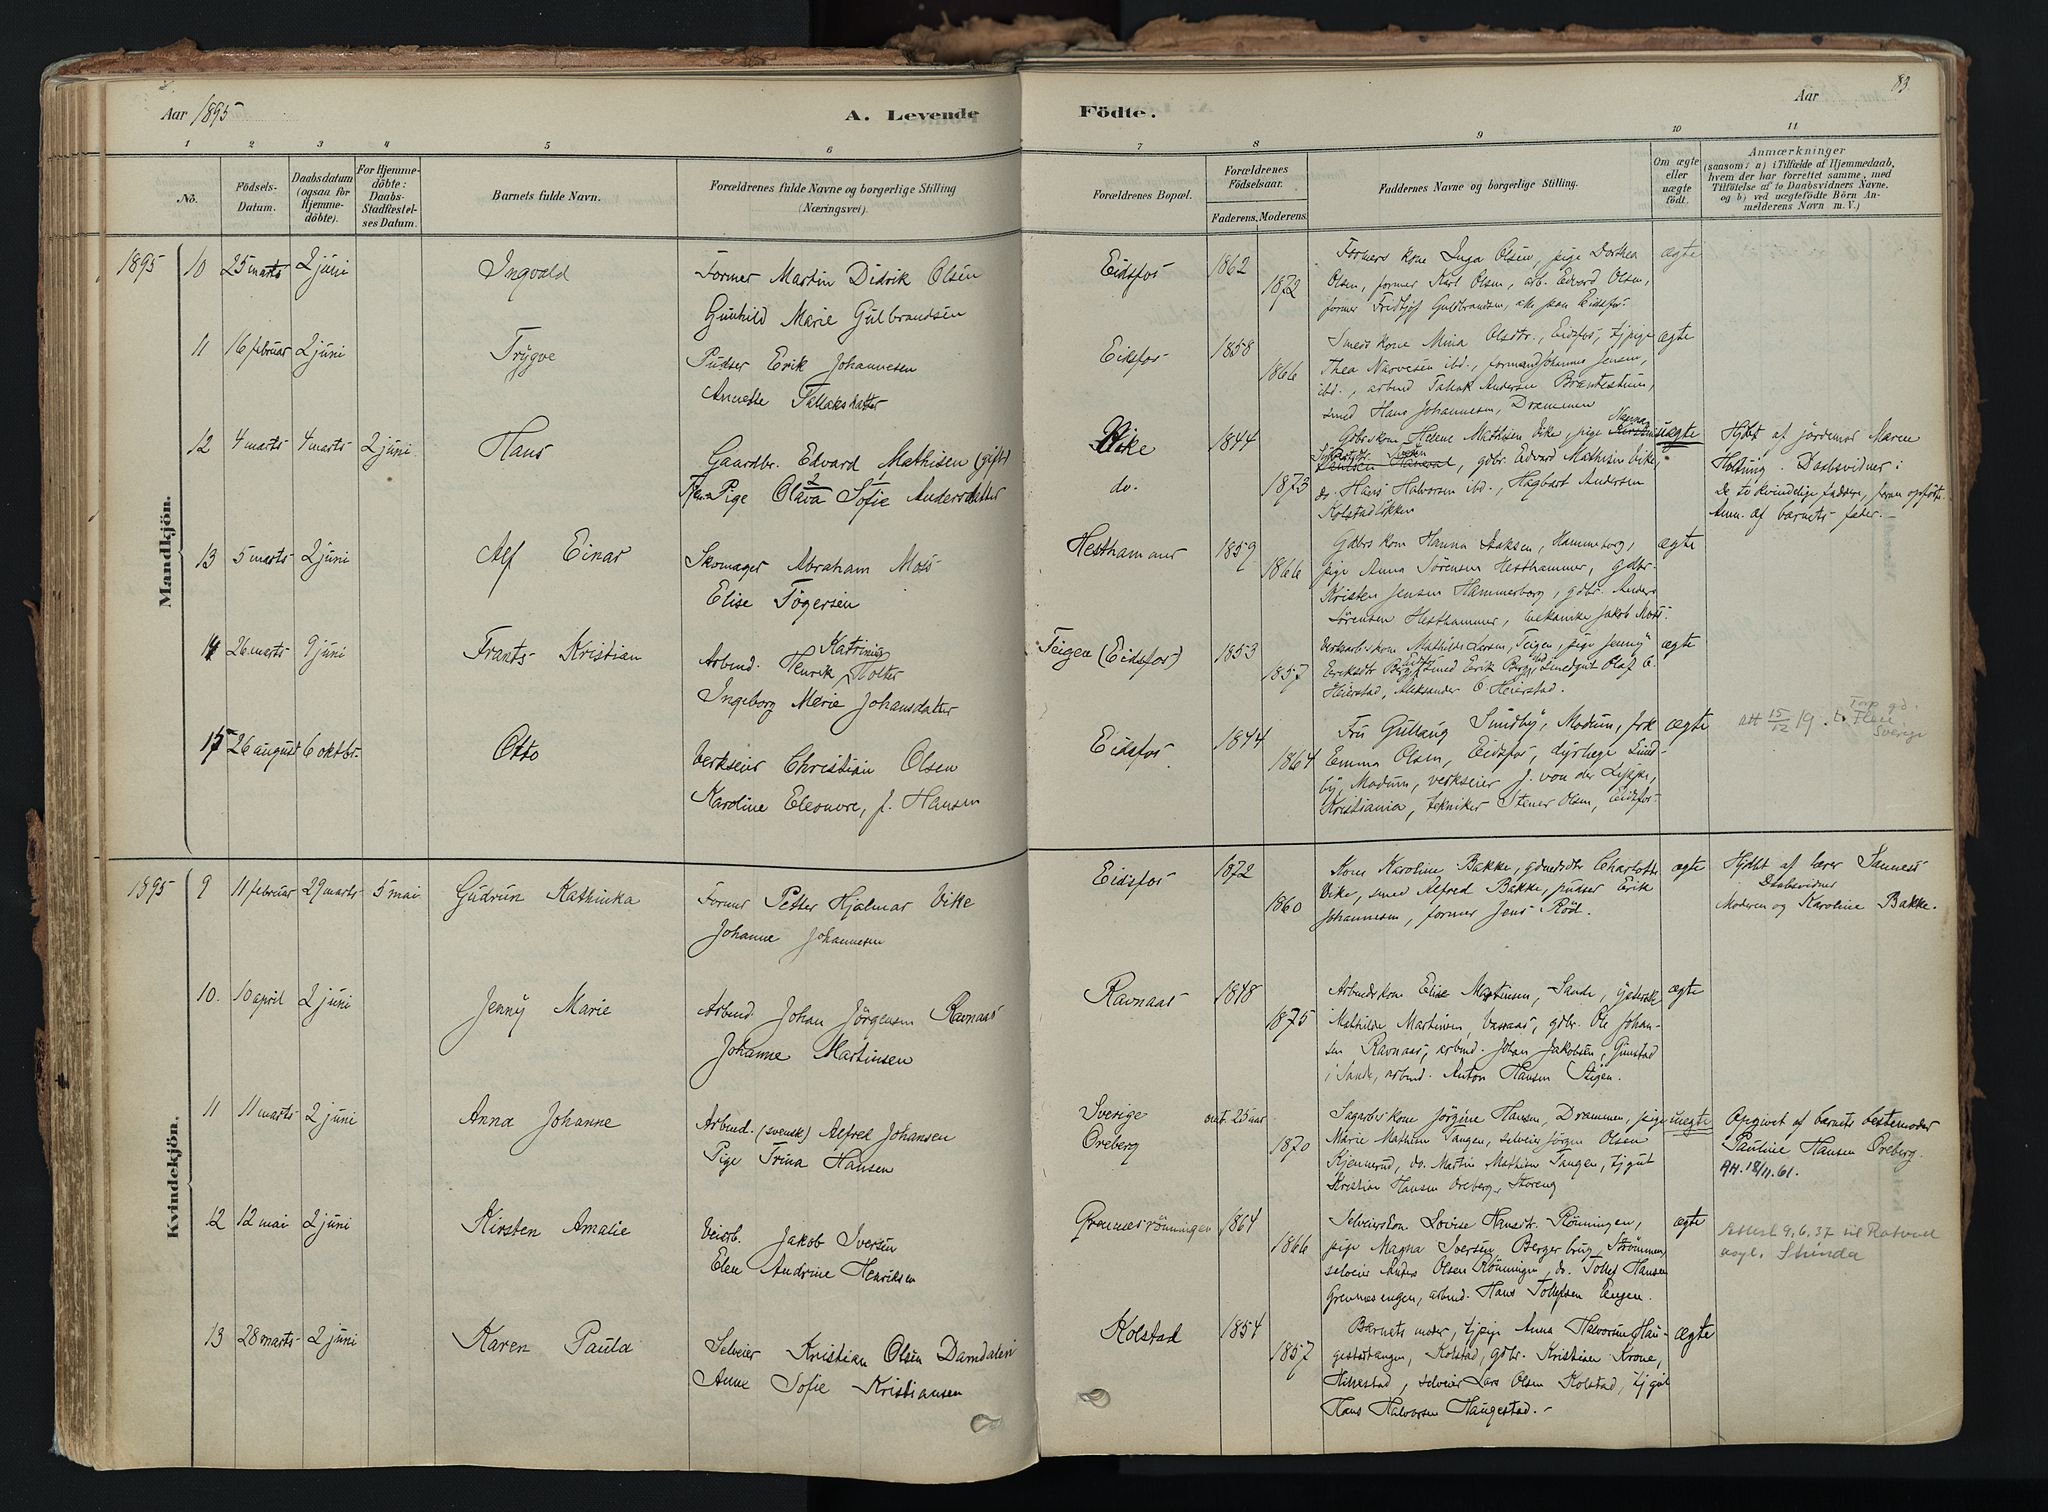 Aar 1895
A. Levende
Födte.
Aar
83.
1 2 3 4 5 6 7 8 9 10 11
No.
Födsels-
Datum.
Daabsdatum
(ogsaa for
Hjemme-
döbte).
For Hjemme-
döbte:
Daabs-
Stadfæstel-
ses Datum.
Barnets fulde Navn.
Forældrenes fulde Navne og borgerlige Stilling
(Næringsvei).
Forældrenes Bopæl.
Forældrenes
Födselsaar.
Faderens. Moderens.
Faddernes Navne og borgerlige Stilling.
Om ægte
eller
uægte
födt.
Anmærkninger
(saasom: a) i Tilfælde af Hjemmedaab,
hvem der har forrettet samme, med
Tilföielse af to Daabsvidners Navne,
og b) ved uægtefödte Börn An-
melderens Navn m. V.)
Mandkjön.
1895 10 25 marts 2 juni Ingvald
Former Martin Didrik Olsen
Gunhild Marie Gulbrandsen
Eidsfos 1862 1872
Formers kone Inga Olsen, pige Dorthea
Olsen, former Karl Olsen, arb. Edvard Olsen,
former Fridtjof Gulbrandsen, alle paa Eidsfos.
ægte
11 16 februar 2 juni Trygve
Pudser Erik Johannesen
Annette Tallaksdatter
Eidsfos 1858 1866
Smeds kone Mina Olsdtr., Eidsfos, tj.pige
Thea Narvesen ibd., formand Johannes Jensen,
ibd., arbmd Tallak Andersen Brantestuen,
smed Hans Johannesen, Drammen
ægte
12 4 marts 4 marts 2 juni Hans
Gaardbr. Edvard Mathisen (gift)
Tjen. Pige Olava Sofie Andersdatter
Vike
do.
1844 1873
Gdbrs kone Helene Mathisen Vike, pige Hanna
gdbr. Edvard Mathisen Vike,
do. Hans Halvorsen ibd., Hagbart Andersen
Kolstadlökken
uægte
Hjdbt af jordemor Maren
Holtung. Daabsvidner:
De to kvindelige faddere, faren opförte.
Anm. af barnets fader.
13 5 marts 2 juni Alf Einar
Skomager Abraham Moss
Elise Tögersen
Hesthammer 1859 1866
Gdbrs kone Hanna Isaksen, Hammerborg,
pige Anna Sörensen Hesthammer, gdbr.
Kristen Jensen Hammerborg, gdbr. Anders
Sörensen Hesthammer, mekaniker Jakob Moss.
ægte
14 26 marts 9 juni Frants Kristian
Arbmd. Henrik Katrinus Holter
Ingeborg Marie Johansdatter
Teigen (Eidsfos) 1853 1857
Verksarb.s kone Mathilde Larsen, Teigen, pige Jenny
Eriksdtr Berg, smed Erik Berg, smedgut Olaf C.
Heierstad, Aleksander C. Heierstad.
ægte
15 26 august 6 oktbr. Otto
Verkseier Christian Olsen
Karoline Eleonore, f. Hansen
Eidsfos 1844 1864
Fru Gullaug Sundby, Modum, frk
Emma Olsen, Eidsfos, dyrlæge Sund-
by, Modum, verkseier J. von der Lippe,
Kristiania, tekniker Stener Olsen, Eidsfos.
ægte
Att 15/12 19.
Sverige
Kvindekjön.
1895 9 11 februar 29 marts 5 mai Gudrun Kathinka
Former Petter Hjalmar Vike
Johanne Johannesen
Eidsfos 1872 1860
Kone Karoline Bakke, gdmdsdtr Charlotte
Vike, smed Alfred Bakke, pudser Erik
Johannesen, former Jens Röd.
ægte
Hjdbt af lærer Sannes
Daabsvidner
Moderen og Karoline Bakke.
10. 10 april 2 juni Jenny Marie
Arbmd Johan Jörgensen Ravnaas
Johanne Martinsen
Ravnaas 1848 1875
Arbmds kone Elise Martinsen, Sande, gjeterske
Mathilde Martinsen Vasaas, gdbr. Ole Johan-
sen Ravnaas, arbmd. Johan Jakobsen, Gunstad
i Sande, arbmd. Anton Hansen Stigen.
ægte
11 11 marts 2 juni Anna Johanne
Arbmd. (svensk) Alfred Johansen
Pige Trina Hansen
Sverige
Oreberg
omt. 25 aar 1870
Sagarb.s kone Jörgine Hansen, Drammen, pige
Marie Mathisen Tangen, selveier Jörgen Olsen
Kjennerud, do. Martin Mathisen Tangen, tj.gut
Kristian Hansen Oreberg, Storeng
uægte
Opgivet af barnets bestemoder
Pauline Hansen Oreberg.
Att. 18/11. 61.
12 12 mai 2 juni Kirsten Amalie
Veiarb. Jakob Iversen
Elen Andrine Henriksen
Grennesrönningen 1864 1866
Selveierskone Lovise Hansdtr. Rönningen,
pige Magna Iversen Bergerbrug, Strömmen,
selveier Anders Olsen Rönningen, do. Tollef Hansen
Grennesengen, arbmd. Hans Tollefsen Engen.
ægte
Attest 9.6.37 til
13 28 marts 2 juni Karen Paula
Selveier Kristian Olsen Damdalen
Anne Sofie Kristiansen
Kolstad 1854 1857
Barnets moder, tj.pige Anna Halvorsen Hau-
gestadtangen, Kolstad, gdbr. Kristian Krone,
Hillestad, selveier Lars Olsen Kolstad, tj.gut
Hans Halvorsen Haugestad.
ægte